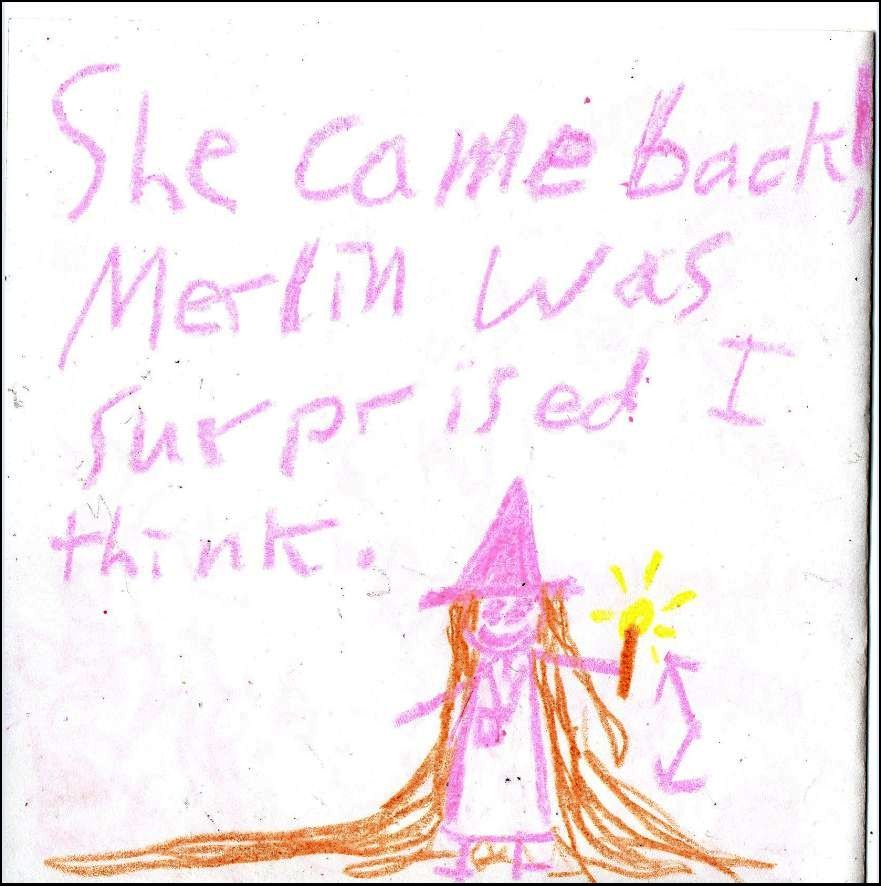 She came back!
Merlin was
surprised I
think.